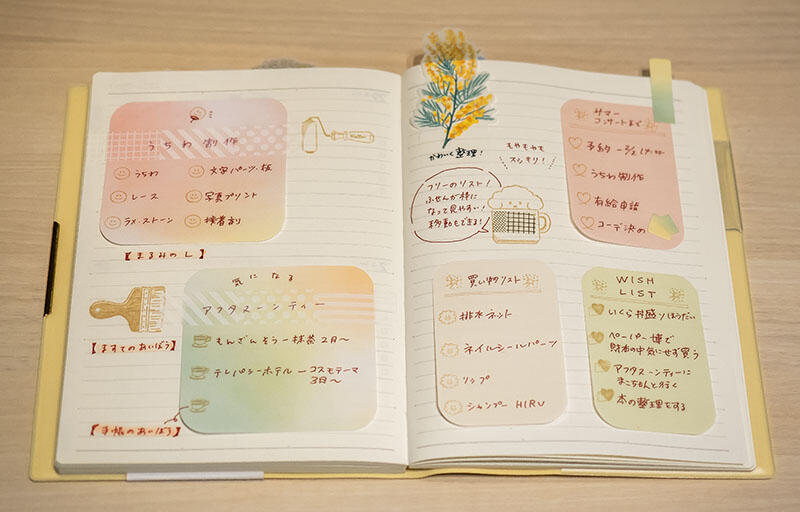 うちわ制作
うちわ
文字パーツ・板
レース
写真プリント
ラメ・ストーン
接着剤
【まるみのし】
気になる
アフタヌーンティー
もんざんそう－抹茶 2月～
テレパシーホテル－コスモテーマ
3月～
【ますてのあいぼう】
【手帳のあいぼう】
かわいく整理!
もやもやも
スッキリ!
フリーのリスト!
ふせんが枠に
なって見やすい!
移動もできる!
サマー
コンサートまで
予約
うちわ制作
有給申請
コーデ決め
買い物リスト
排水ネット
ネイルシールパーツ
リップ
シャンプー HIRU
WISH
LIST
いくら丼盛りほうだい
ペーパー博で
財布の中気にせず買う
アフタヌーンティーに
まこちんと行く
本の整理をする